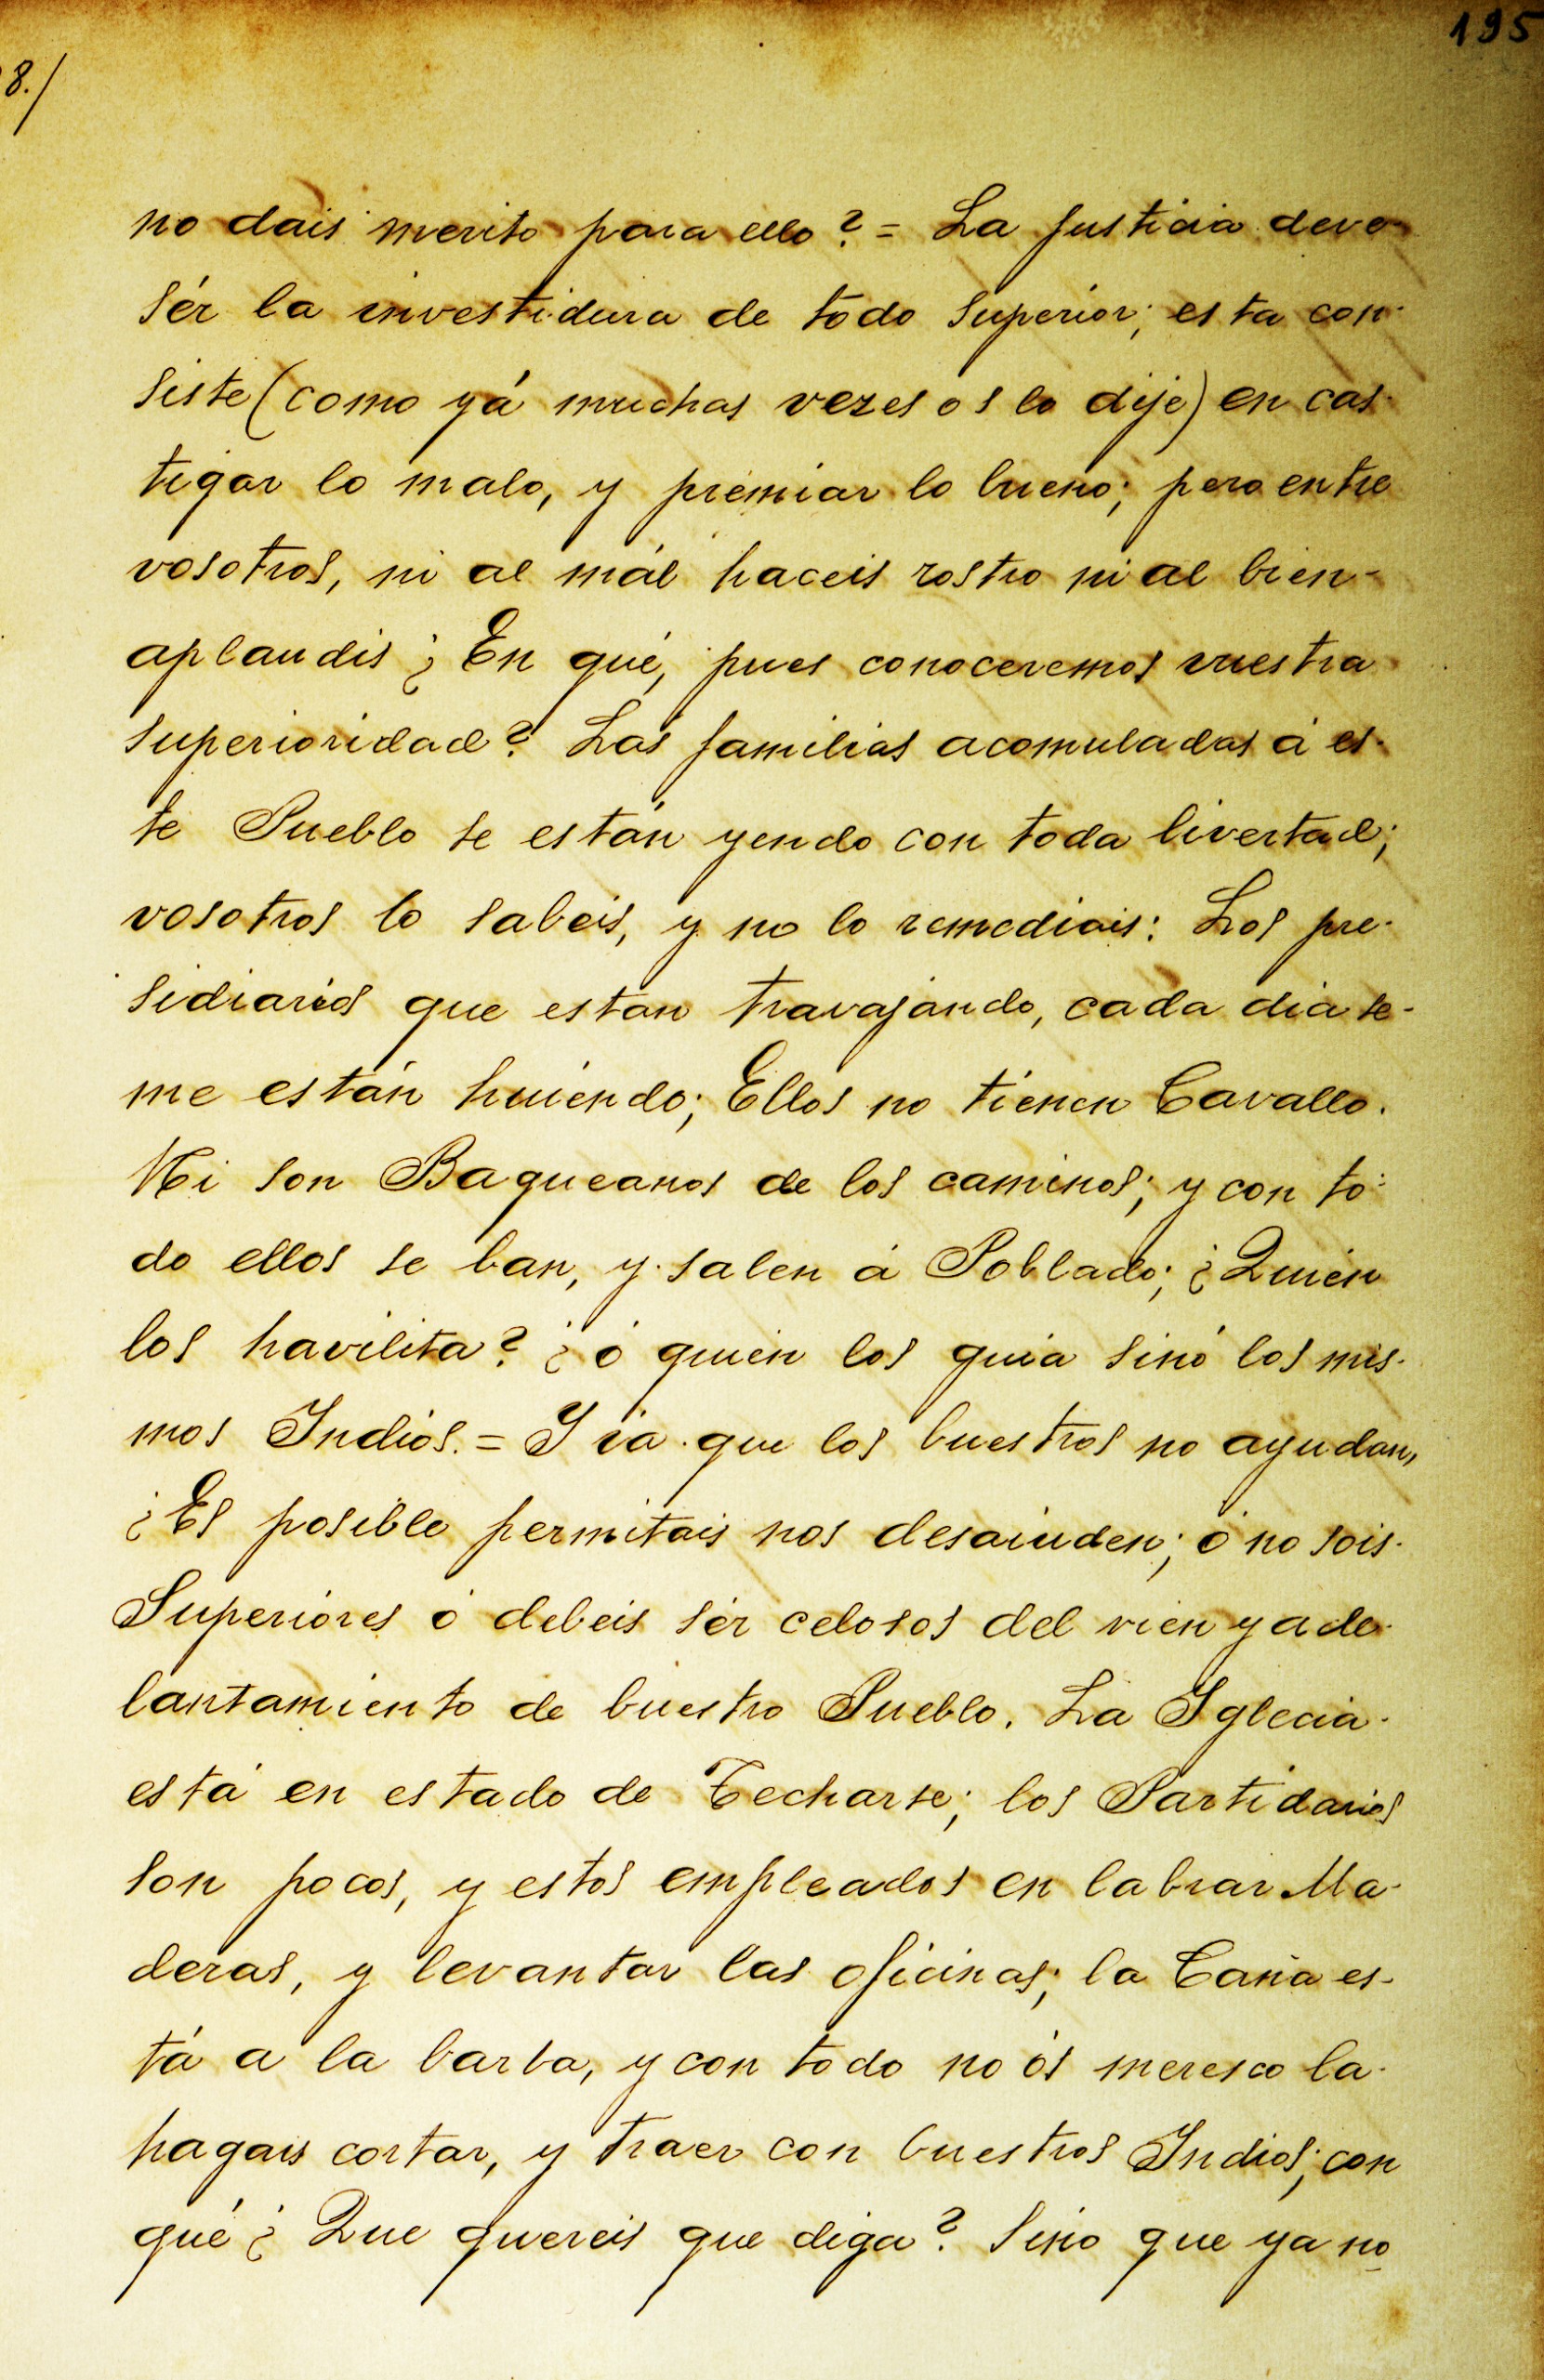 195
8./
no dais merito para ello? = La Justicia deve
sér la investidura de todo Superior; esta con-
siste (como yá muchas vezes os lo dije) en cas-
tigar lo malo, y premiar lo bueno; pero entre
vosotros, ni al mál haceis rostro ni al bien-
aplaudis ¿ En qué, pues conoceremos vuestra
superioridad? Las familias acomuladas á es-
te Pueblo se están yendo con toda livertad;
vosotros lo sabeis, y no lo remediais: Los pre-
sidiarios que estan travajando, cada dia se-
me están huiendo; Ellos no tienen Cavallo.
Ni son Baqueanos de los caminos; y con to-
do ellos se ban, y salen á Poblado; ¿Quién
los havilita? ¿ó quien los guia sinó los mis-
mos Indios. = Y ia que los buestros no ayudan,
¿Es posible permitais nos desaiuden; ó no sois-
Superiores ó debeis sér celosos del vien y ade-
lantamiento de buestro Pueblo. La Iglecia-
está en estado de Techarse; los Partidarios
son pocos, y estos empleados en labrar Ma-
deras, y levantar las oficinas; la Caña es-
tá a la barba, y con todo no ós meresco la-
hagais cortar, y traer con buestros Indios; con
qué ¿ Que quereis que diga? Sino que ya no